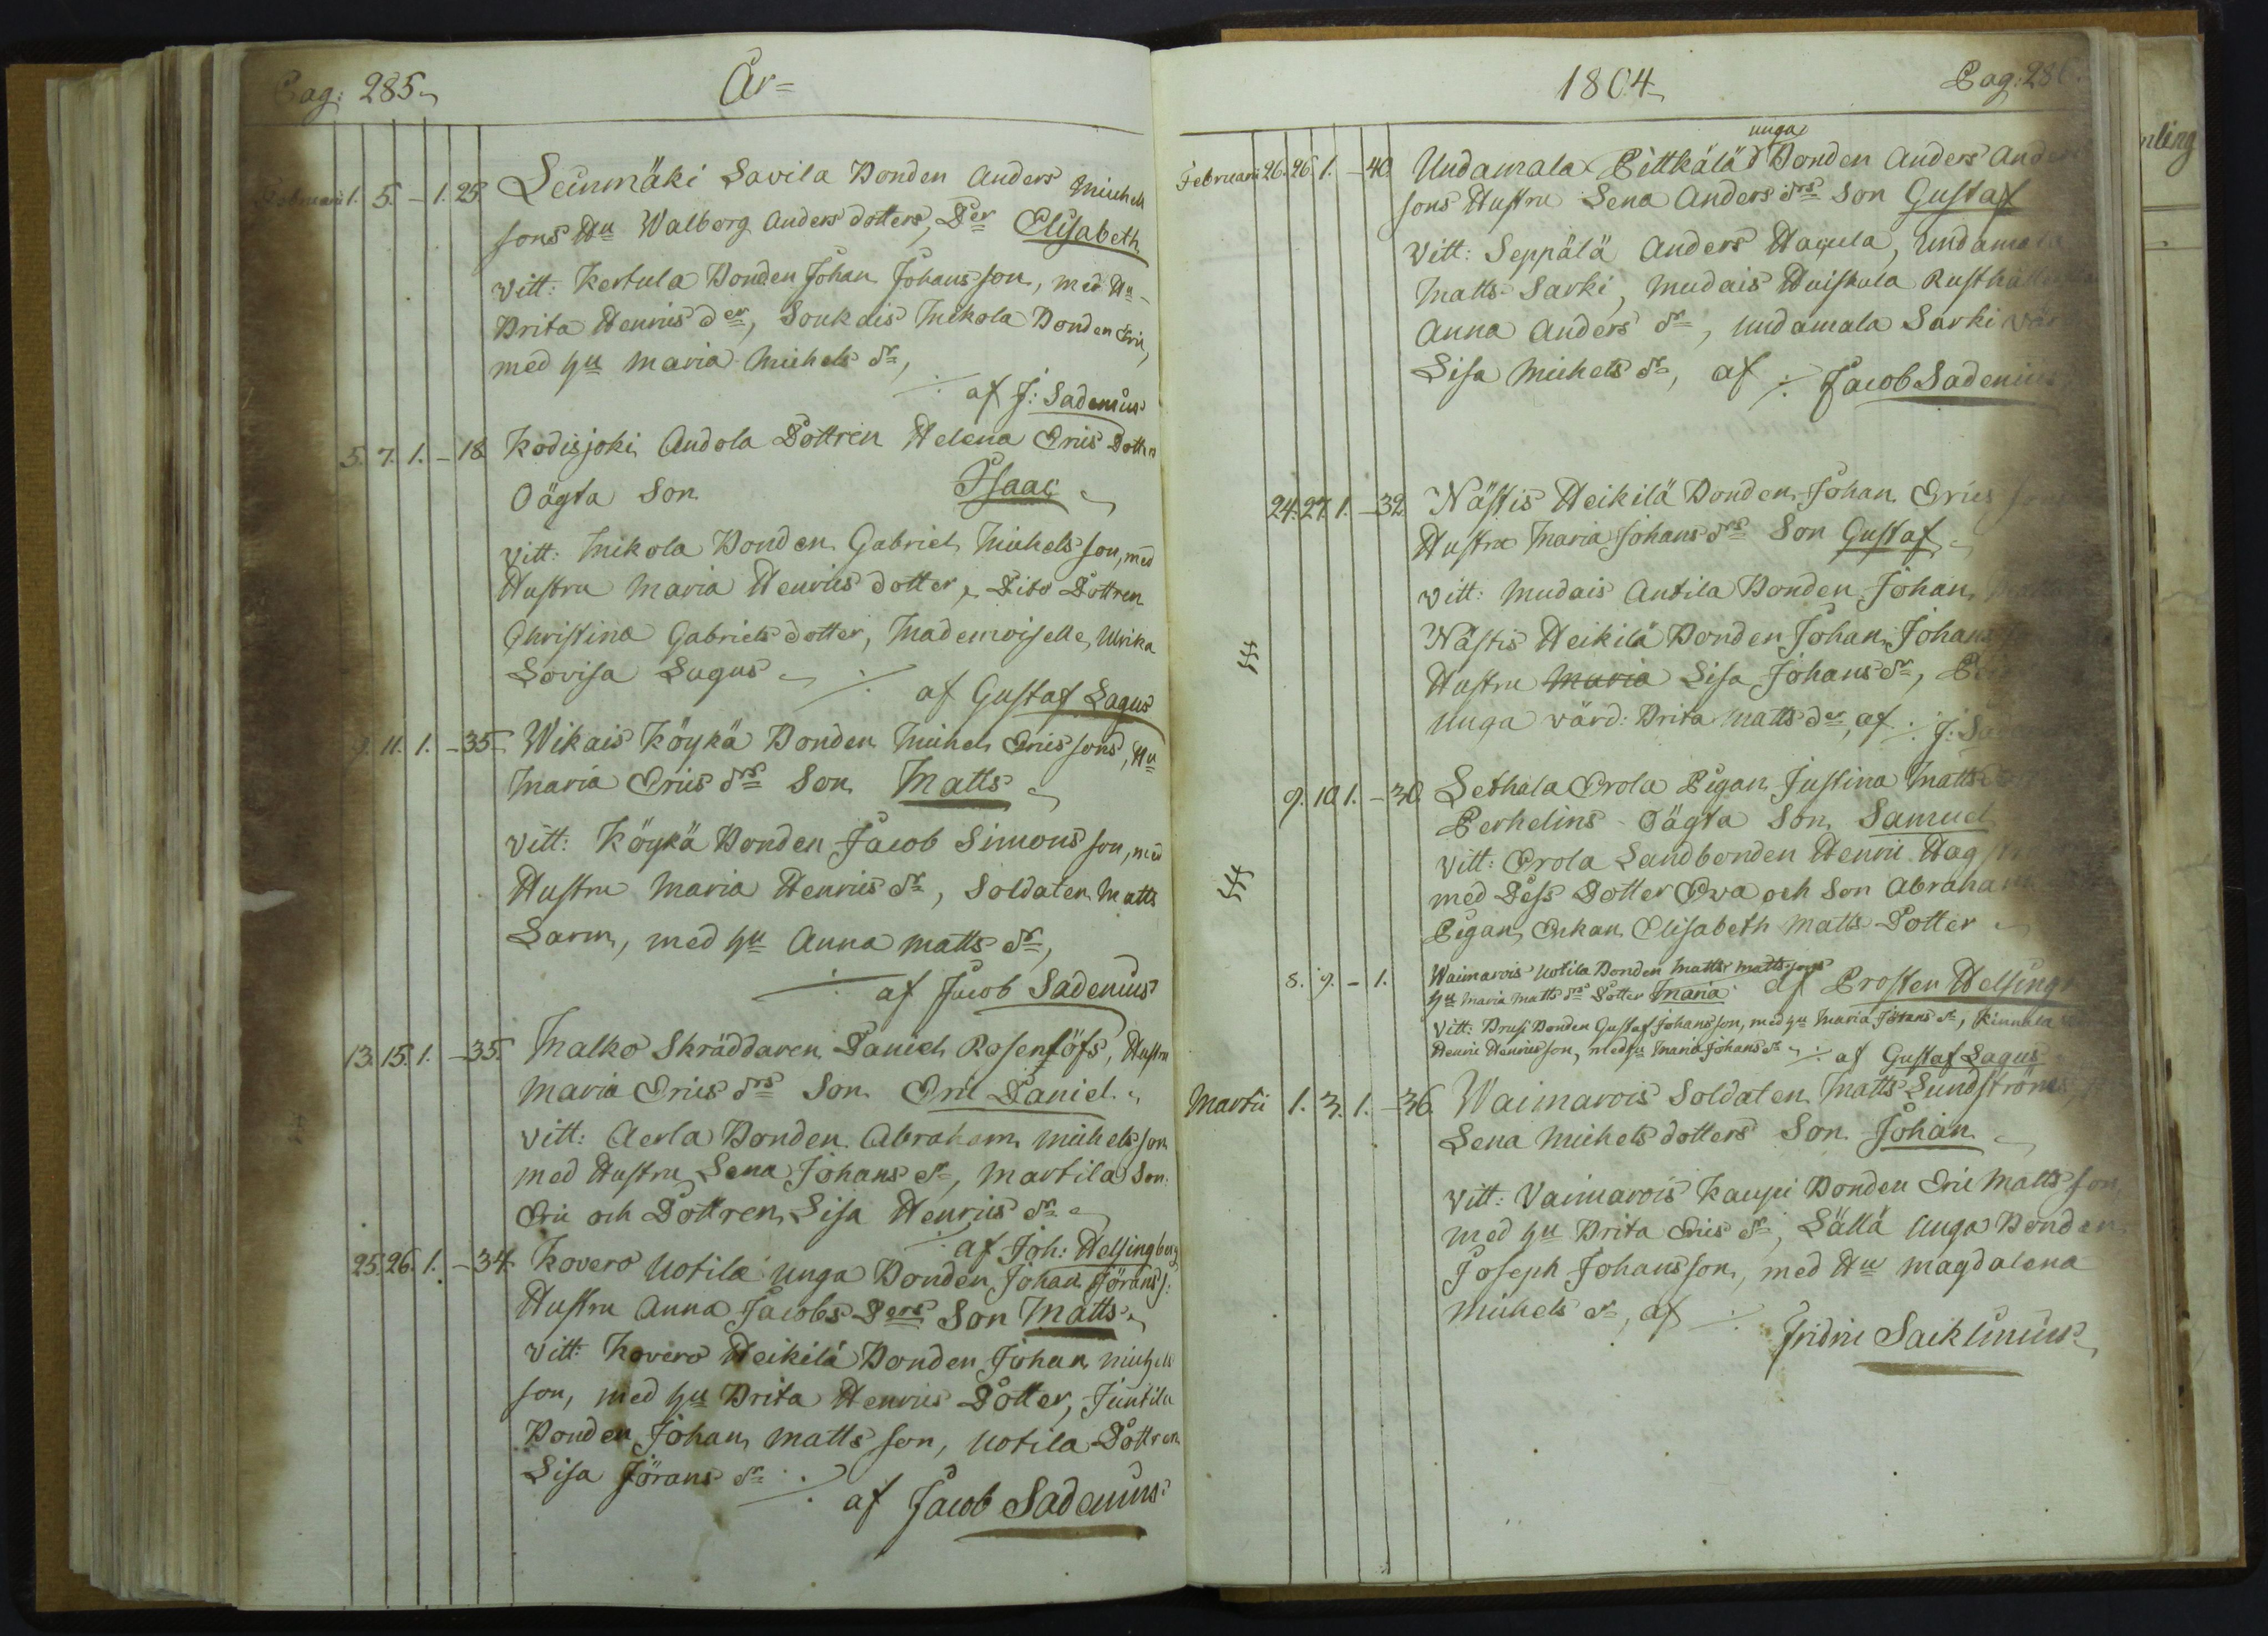 Pag: 285.
År=
Februarii 1. 5. - 1. 25. Leinmäki Savila Bonden Anders Michels
sons Hu Walborg Anders dotters, Der Elisabeth
Vitt: Kertula Bonden Johan Johans son, med Hu
Brita Henrics der, Soukais Mikola Bonden Eric,
med hu Maria Michels dr,
af J: Sadenius
5. 7. 1. - 18. Kodisjoki Andola Dottren Helena Erics Dotters
Oägta Son Isaac
vitt: Mikola Bonden Gabriel Michels son, med
Hustru Maria Henrics dotter, Dito Dottren
Christina Gabriels dotter, Mademoiselle Ulrika
Lovisa Lagus
af Gustaf Lagus
9. 11. 1. - 35. Wikais Köykä Bonden Michel Erics sons, Hu
Maria Erics drs Son Matts
vitt: Köykä Bonden Jacob Simons son, med
Hustru Maria Henrics dr, Soldaten Matts
Larm, med hu Anna Matts dr,
af Jacob Sadenius
13. 15. 1. - 35. Malko Skräddaren Daniel Rosenlöfs, Hustru
Maria Erics drs Son Eric Daniel
vitt: Aerla Bonden Abraham Michels son
med Hustru Lena Johans dr, Martila Son
Eric och Dottren Lisa Henrics dr
af Joh: Helsingberg
25. 26. 1. - 34. Kovero Uotila unga Bonden Johan Jörans s:
Hustru Anna Jacobs Ders Son Matts
vitt: Kovero Heikilä Bonden Johan Michels
son, med hu Brita Henrics Dotter, Juntila
Bonden Johan Matts son, Uotila Dottren
Lisa Jörans dr
af Jacob Sadenius
1804
Pag: 286.
unga
Februarii 26. 26. 1. - 40. Undamala Pittkälä Bonden Anders Anders
sons Hustru Lena Anders drs Son Gustaf
Vitt: Seppälä Anders Hagula, Undamala
Matts Sarki, Mudais Huiskala Rusthåll
Anna Anders dr, Undamala Sarki
Lisa Michels dr, af Jacob Sadenius
24. 27. 1. - 32. Nästis Heikilä Bonden Johan Erics
Hustru Maria Johans drs Son Gustaf
vitt: Mudais Antila Bonden Johan
Nästis Heikilä Bonden Johan Johans
Hustru Maria Lisa Johans dr,
Unga wärd: Brita Matts der, af J:
9. 10. 1. - 30. Lethala Erola Pigan Justina Matts
Perhelins Oägta Son Samuel
vitt: Erola Landbonden Henric Hag
med Dess Dotter Ewa och Son Abraham
Pigan Enkan Elisabeth Matts Dotter
8. 9. - 1. Waimarois Uotila Bonden Matts Matts sons
hu Maria Matts drs Dotter Maria af Prosten Helsing
Vitt: Prusi Bonden Gustaf Johans son, med hu Maria Jörans dr, Kinnala
Henric Henrics son, med hu Maria Johans dr af Gustaf Lagus
Martii 1. 3. 1. - 36. Waimarois Soldaten Matts Lundströms
Lena Michels dotters Son Johan
vitt: Vaimarois Kaupi Bonden Eric Matts son,
med hu Brita Erics dr, Lällä Unga Bonden
Joseph Johans son, med Hu Magdalena
Michels dr, af
Fridric Saiklinius
nling